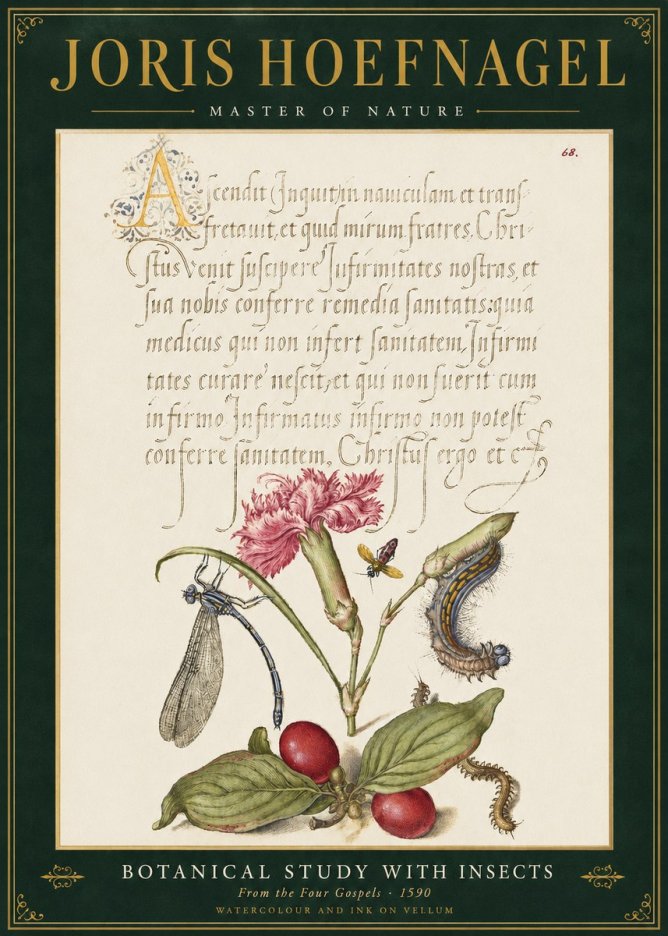 JORIS HOEFNAGEL
MASTER OF NATURE
68.
Ascendit (Inquit) in nauiculam et tranſ-
fretauit, et quid mirum fratres, Chri-
ſtus Venit ſuſcipere Infirmitates noſtras, et
ſua nobis conferre remedia ſanitatis: quia
medicus qui non infert ſanitatem, Infirmi
tates curare neſcit, et qui non fuerit cum
infirmo Infirmatus infirmo non poteſt
conferre ſanitatem, Chriſtuſ ergo et c
BOTANICAL STUDY WITH INSECTS
From the Four Gospels · 1590
WATERCOLOUR AND INK ON VELLUM